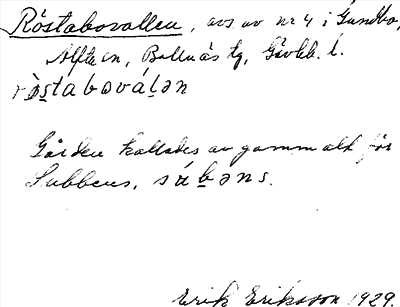 Röstabovallen, avs av nr 4 i Sundbo,
Alfta sn, Bollnäs tg, Gävleb. l.
rö̀staboválən
Gården kallades av gammalt för
Subbens, súbəns.
Erik Eriksson 1929.